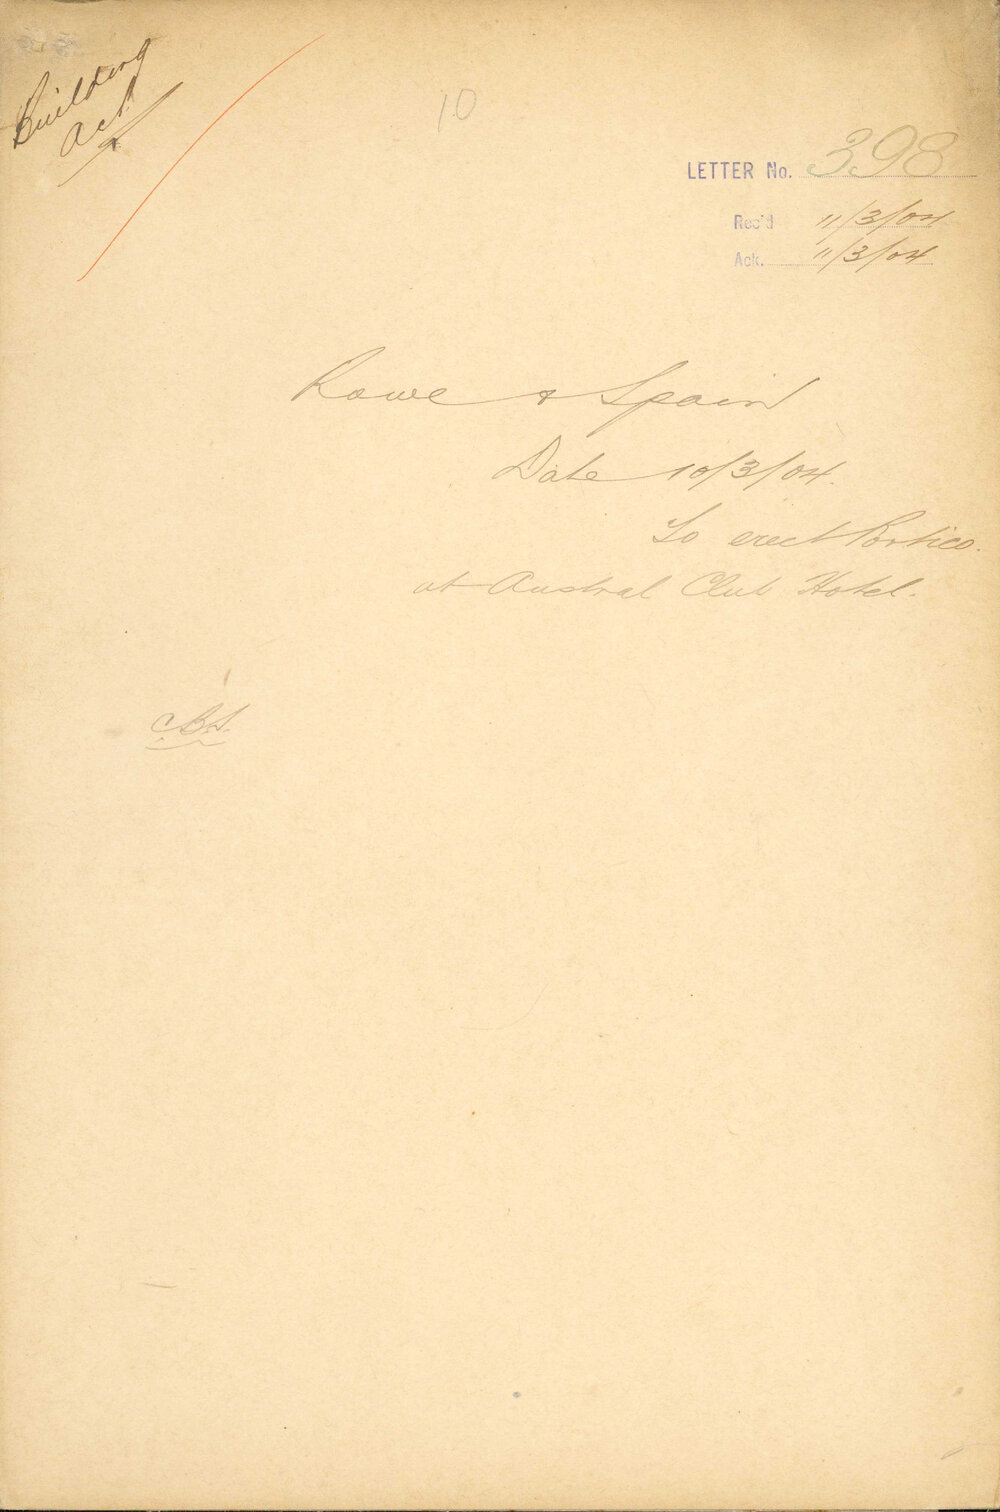 Building
Act
10
LETTER No. 398
Rec'd 11/3/04
Ack. 11/3/04
Rowe & Spain
Date 10/3/04.
To erect Portico.
at Austral Club Hotel.